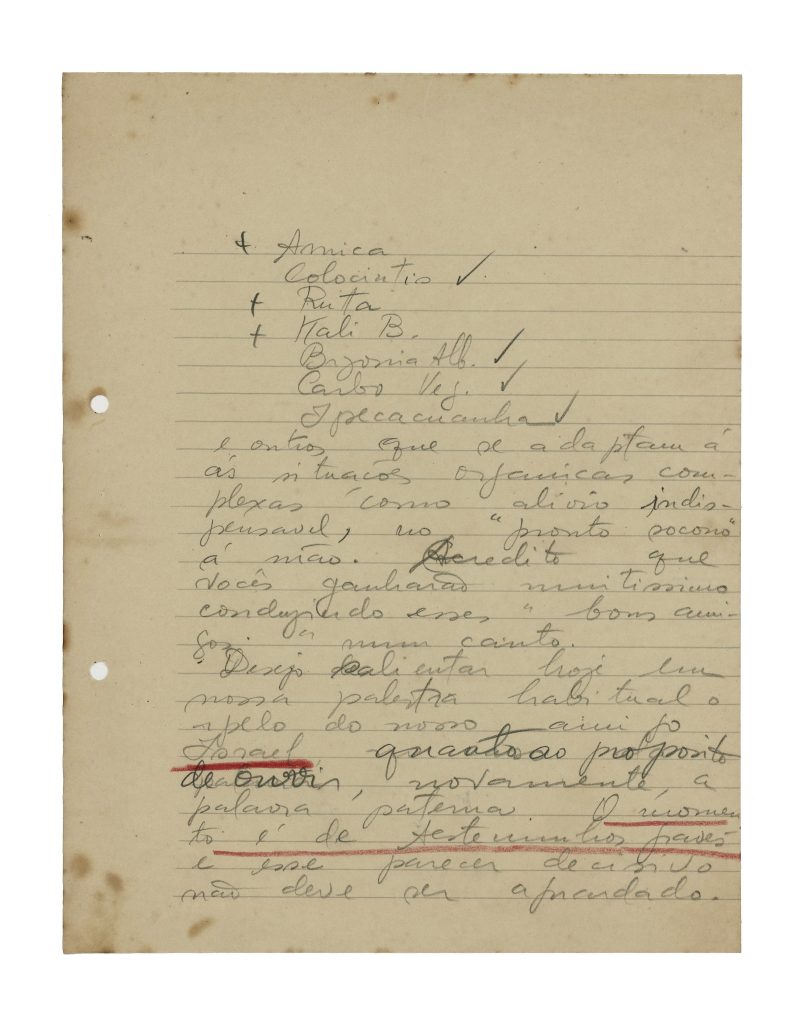 + Arnica
Colocintis ✓
+ Rutta
+ Kali B.
Bryonia Alb. ✓
Carbo Veg. ✓
Ipecacuanha ✓
e outros que se adaptam á
ás situacões organicas com-
plexas como alivio indis-
pensavel, no "pronto socorro"
á mão. Acredito que
vocês ganharão muitissimo
conduzindo esses "bons ami-
gos" num canto.
Desejo salientar hoje em
nossa palestra habitual o
apelo do nosso amigo
Israel quanto ao proposito
de ouvir, novamente a
palavra paterna O momen
to é de testemunhos graves
e esse parecer decisivo
não deve ser aguardado.